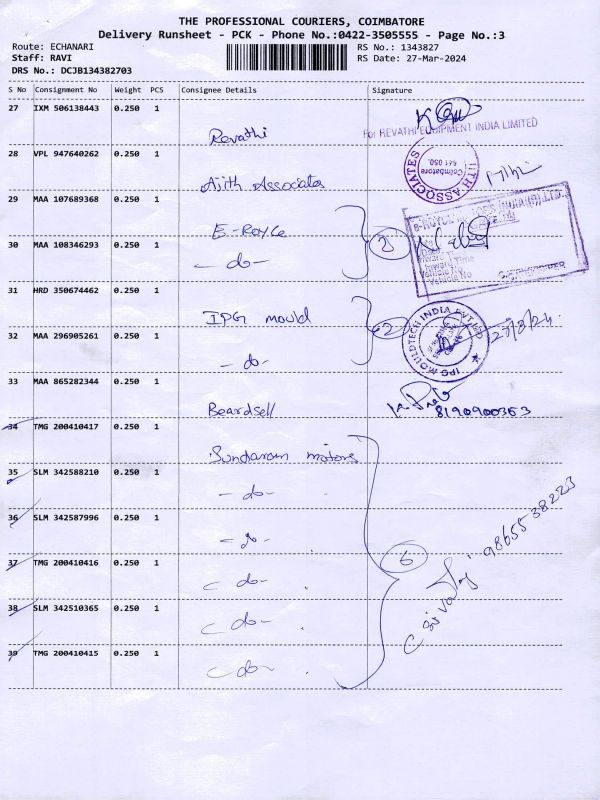 THE PROFESSIONAL COURIERS, COIMBATORE
Delivery Runsheet - PCK - Phone No.:0422-3505555 - Page No.:3
Route: ECHANARI
RS No.: 1343827
Staff: RAVI
RS Date: 27-Mar-2024
DRS No.: DCJB134382703
S No Consignment No Weight PCS Consignee Details Signature
27 IXM 506138443 0.250 1
Revathi
For REVATHI EQUIPMENT INDIA LIMITED
28 VPL 947640262 0.250 1
Ajith Associates
JITH ASSOCIATES
Coimbatore
641 050.
29 MAA 107689368 0.250 1
E-Royce
30 MAA 108346293 0.250 1
- do -
2
Vehicle No
31 HRD 350674462 0.250 1
IPG mould
32 MAA 296905261 0.250 1
- do -
2
IPG MOULDTECH INDIA PVT LTD
27/3/24
33 MAA 865282344 0.250 1
Beardsell
8190900363
34 TMG 200410417 0.250 1
Sundaram motors
35 SLM 342588210 0.250 1
- do -
36 SLM 342587996 0.250 1
- do -
37 TMG 200410416 0.250 1
- do -
6
9865538223
38 SLM 342510365 0.250 1
- do -
39 TMG 200410415 0.250 1
- do -